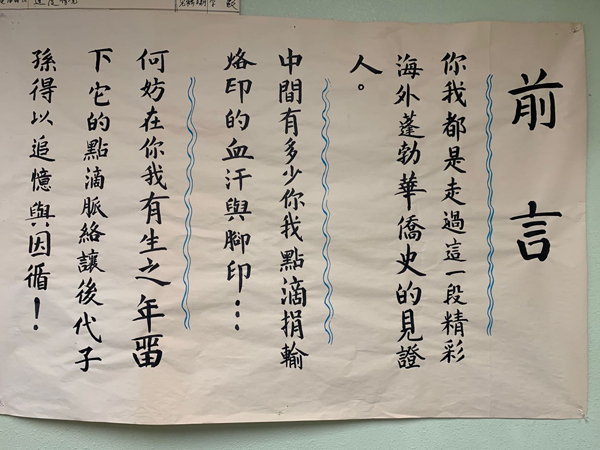 前言
你我都是走過這一段精彩
海外蓬勃華僑史的見證
人。
中間有多少你我點滴捐輸
烙印的血汗與腳印⋯
何妨在你我有生之年畱
下它的點滴脈絡讓後代子
孫得以追憶與因循！